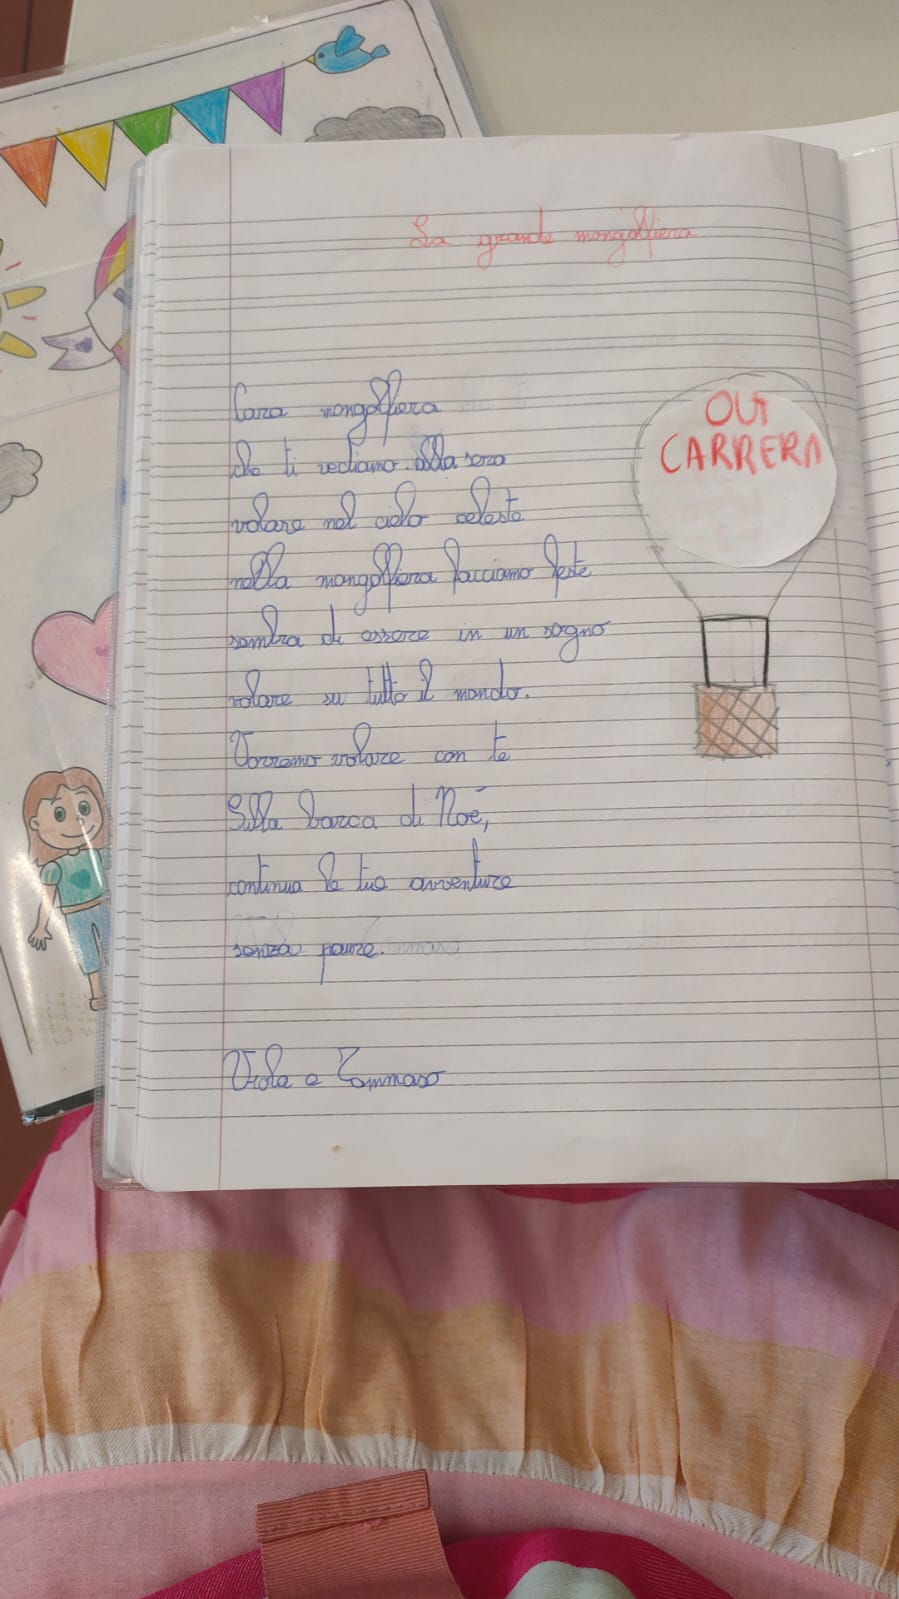 La grande mongolfiera
Cara mongolfiera
che ti vediamo alla sera
volare nel cielo celeste
nella mongolfiera facciamo feste
sembra di essere in un sogno
volare su tutto il mondo.
Vorremo volare con te
Sulla barca di Noé,
continua le tue avventure
senza paure.
Viola e Tommaso
OUI
CARRERA